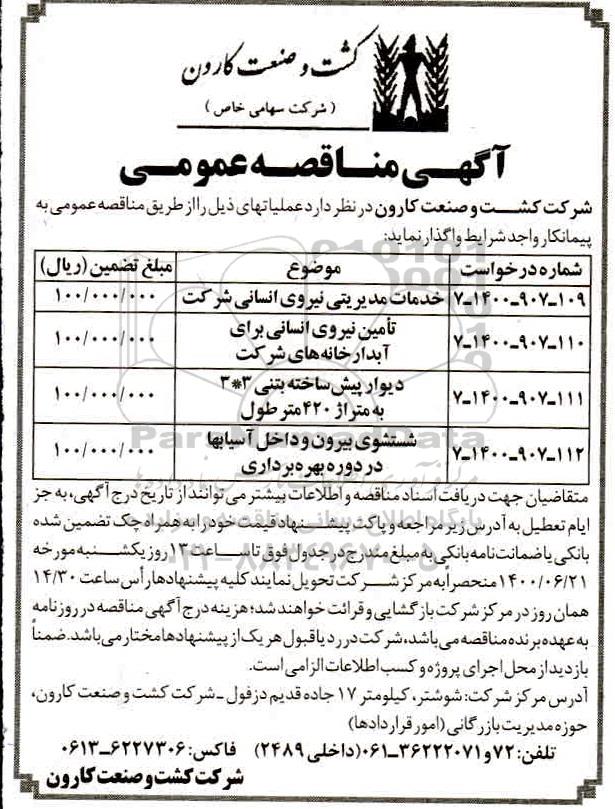 کشت و صنعت کارون
( شرکت سهامی خاص )
آگهی مناقصه عمومی
شرکت کشت و صنعت کارون در نظر دارد عملیاتهای ذیل را از طریق مناقصه عمومی به
پیمانکار واجد شرایط واگذار نماید:
شماره درخواست موضوع مبلغ تضمین (ریال)
۷-۱۴۰۰-۹۰۷-۱۰۹ خدمات مدیریتی نیروی انسانی شرکت ۱۰۰/۰۰۰/۰۰۰
۷-۱۴۰۰-۹۰۷-۱۱۰ تأمین نیروی انسانی برای ۱۰۰/۰۰۰/۰۰۰
آبدارخانه های شرکت
۷-۱۴۰۰-۹۰۷-۱۱۱ دیوار پیش ساخته بتنی ۳*۳ ۱۰۰/۰۰۰/۰۰۰
به متراژ ۴۲۰ متر طول
۷-۱۴۰۰-۹۰۷-۱۱۲ شستشوی بیرون و داخل آسیابها ۱۰۰/۰۰۰/۰۰۰
در دوره بهره برداری
متقاضیان جهت دریافت اسناد مناقصه و اطلاعات بیشتر می توانند از تاریخ درج آگهی، به جز
ایام تعطیل به آدرس زیر مراجعه و پاکت پیشنهاد قیمت خود را به همراه چک تضمین شده
بانکی یا ضمانت نامه بانکی به مبلغ مندرج در جدول فوق تا ساعت ۱۳ روز یکشنبه مورخه
۱۴۰۰/۰۶/۲۱ منحصرا به مرکز شرکت تحویل نمایند کلیه پیشنهادها رأس ساعت ۱۴/۳۰
همان روز در مرکز شرکت بازگشایی و قرائت خواهند شد؛ هزینه درج آگهی مناقصه در روزنامه
به عهده برنده مناقصه می باشد، شرکت در رد یا قبول هر یک از پیشنهادها مختار می باشد. ضمناً
بازدید از محل اجرای پروژه و کسب اطلاعات الزامی است.
آدرس مرکز شرکت: شوشتر، کیلومتر ۱۷ جاده قدیم دزفول - شرکت کشت و صنعت کارون،
حوزه مدیریت بازرگانی (امور قراردادها)
تلفن: ۷۲ و ۳۶۲۲۲۰۷۱-۰۶۱ (داخلی ۲۴۸۹) فاکس: ۶۲۲۷۳۰۶-۰۶۱۳
شرکت کشت و صنعت کارون